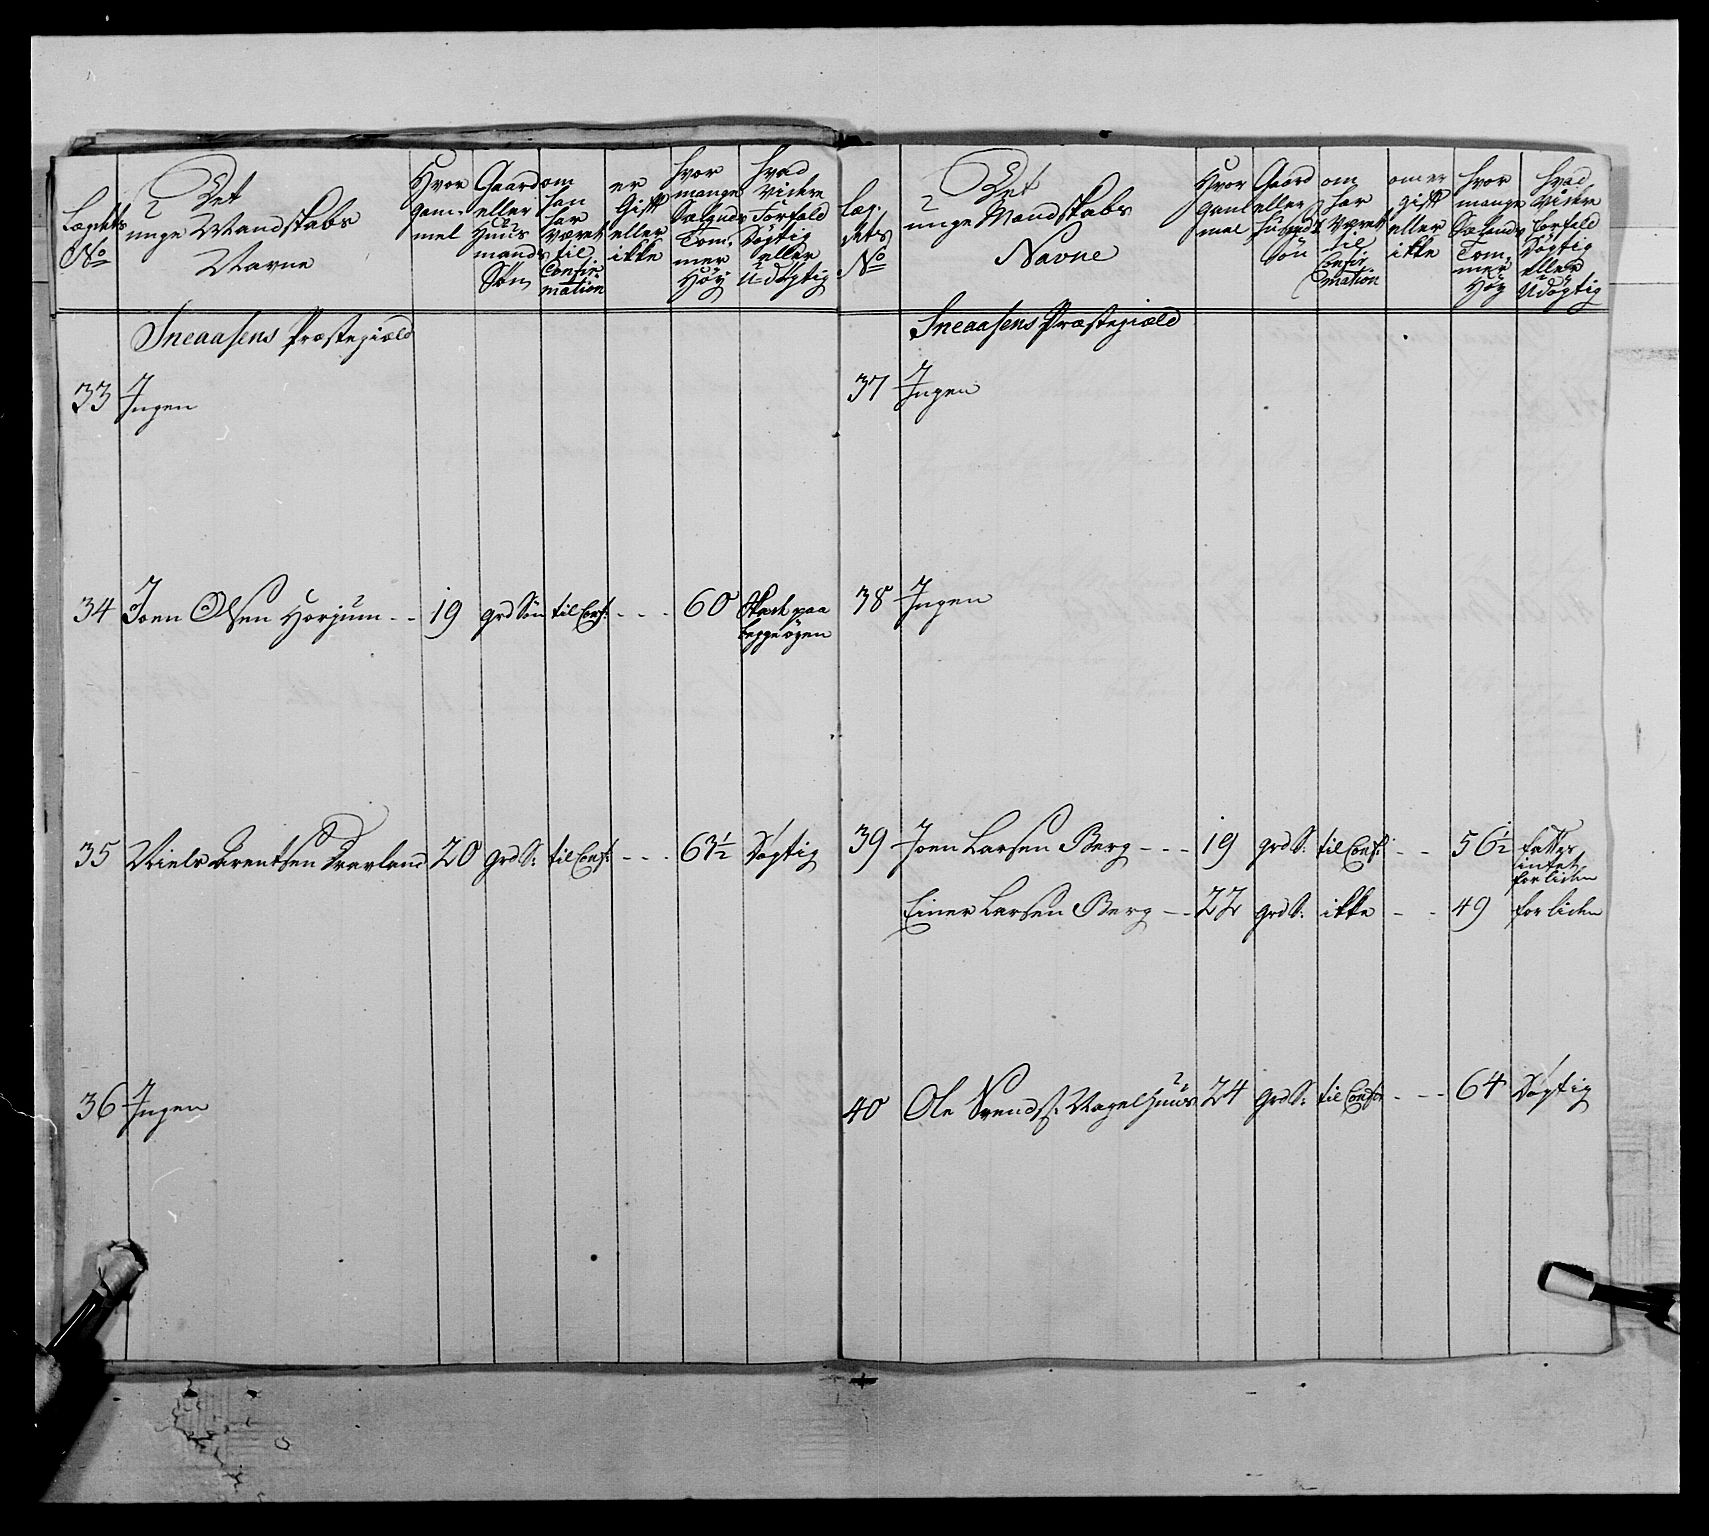 Lægdets No
Det unge Mandskabs Navne
Hvor gammel
Gaard eller Huusmands Søn
om han har været til Confirmation
er Gift eller ikke
hvor mange Sælands Tommer Høy
hvad Videre Forfald Døgtig eller Udøgtig
Sneaasens Præstegiæld
33 Ingen
34 Joen Olsen Horjum - - 19 grd Søn til Conf: - - - 60 Skade paa begge øgen
35 Niels Arentsen 20 grd S: til Conf: - - - 63½ Døgtig
36 Ingen
Lægdets No
Det unge Mandskabs Navne
Hvor gammel
Gaard eller Søn
om har været til Confirmation
om er gift eller ikke
hvor mange Sælands Tommer Høy
hvad Videre forfald Døgtig eller Udøgtig
Sneaasens Præstegiæld
37 Ingen
38 Ingen
39 Joen Larsen Berg - - - 19 grd S. til Conf: - - 56½ intet for liden
Einer Larsen Berg - - 22 grd S. ikke - - 49 for liden
40 Ole Svends: 24 grd S: til Conf: - - - 64 Døgtig